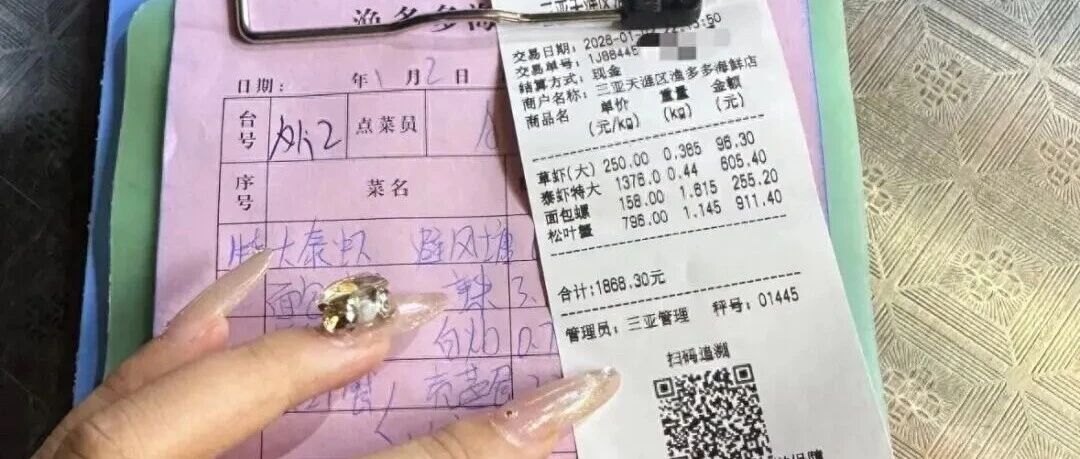 渔多多海
日期: 年1月2日
台号 外2 点菜员
序号 菜名
特大泰虾 避风塘
面包
白灼 0.7
三亚天涯区
交易日期:2026-01
交易单号:1J88445
结算方式:现金
商户名称:三亚天涯区渔多多海鲜店
商品名 单价 重量 金额
(元/kg) (kg) (元)
草虾(大) 250.00 0.385 96.30
泰虾特大 1376.0 0.44 605.40
面包螺 158.00 1.615 255.20
松叶蟹 796.00 1.145 911.40
合计:1868.30元
管理员:三亚管理 秤号:01445
扫码追溯